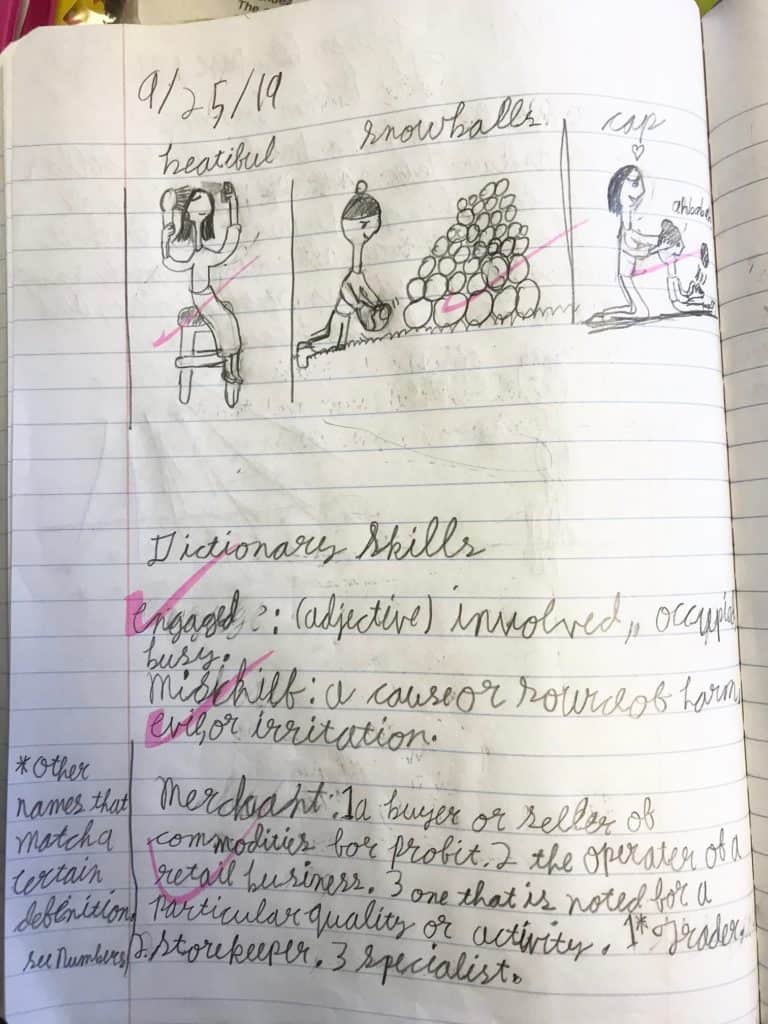 9/25/19
beatiful
snowballs
cap
Dictionary Skills
engaged: (adjective) involved,, occupied
busy.
Mischilf: a cause or sourdof harm,
evil, or irritation.
Merchant: 1 a buyer or seller of
commodities for profit. 2 the operater of a
retail business. 3 one that is noted for a
Particular quality or activity. 1* Trader.
2. Storekeeper. 3 specialist.
*Other
names that
match a
certain
defenition.
see Numbers